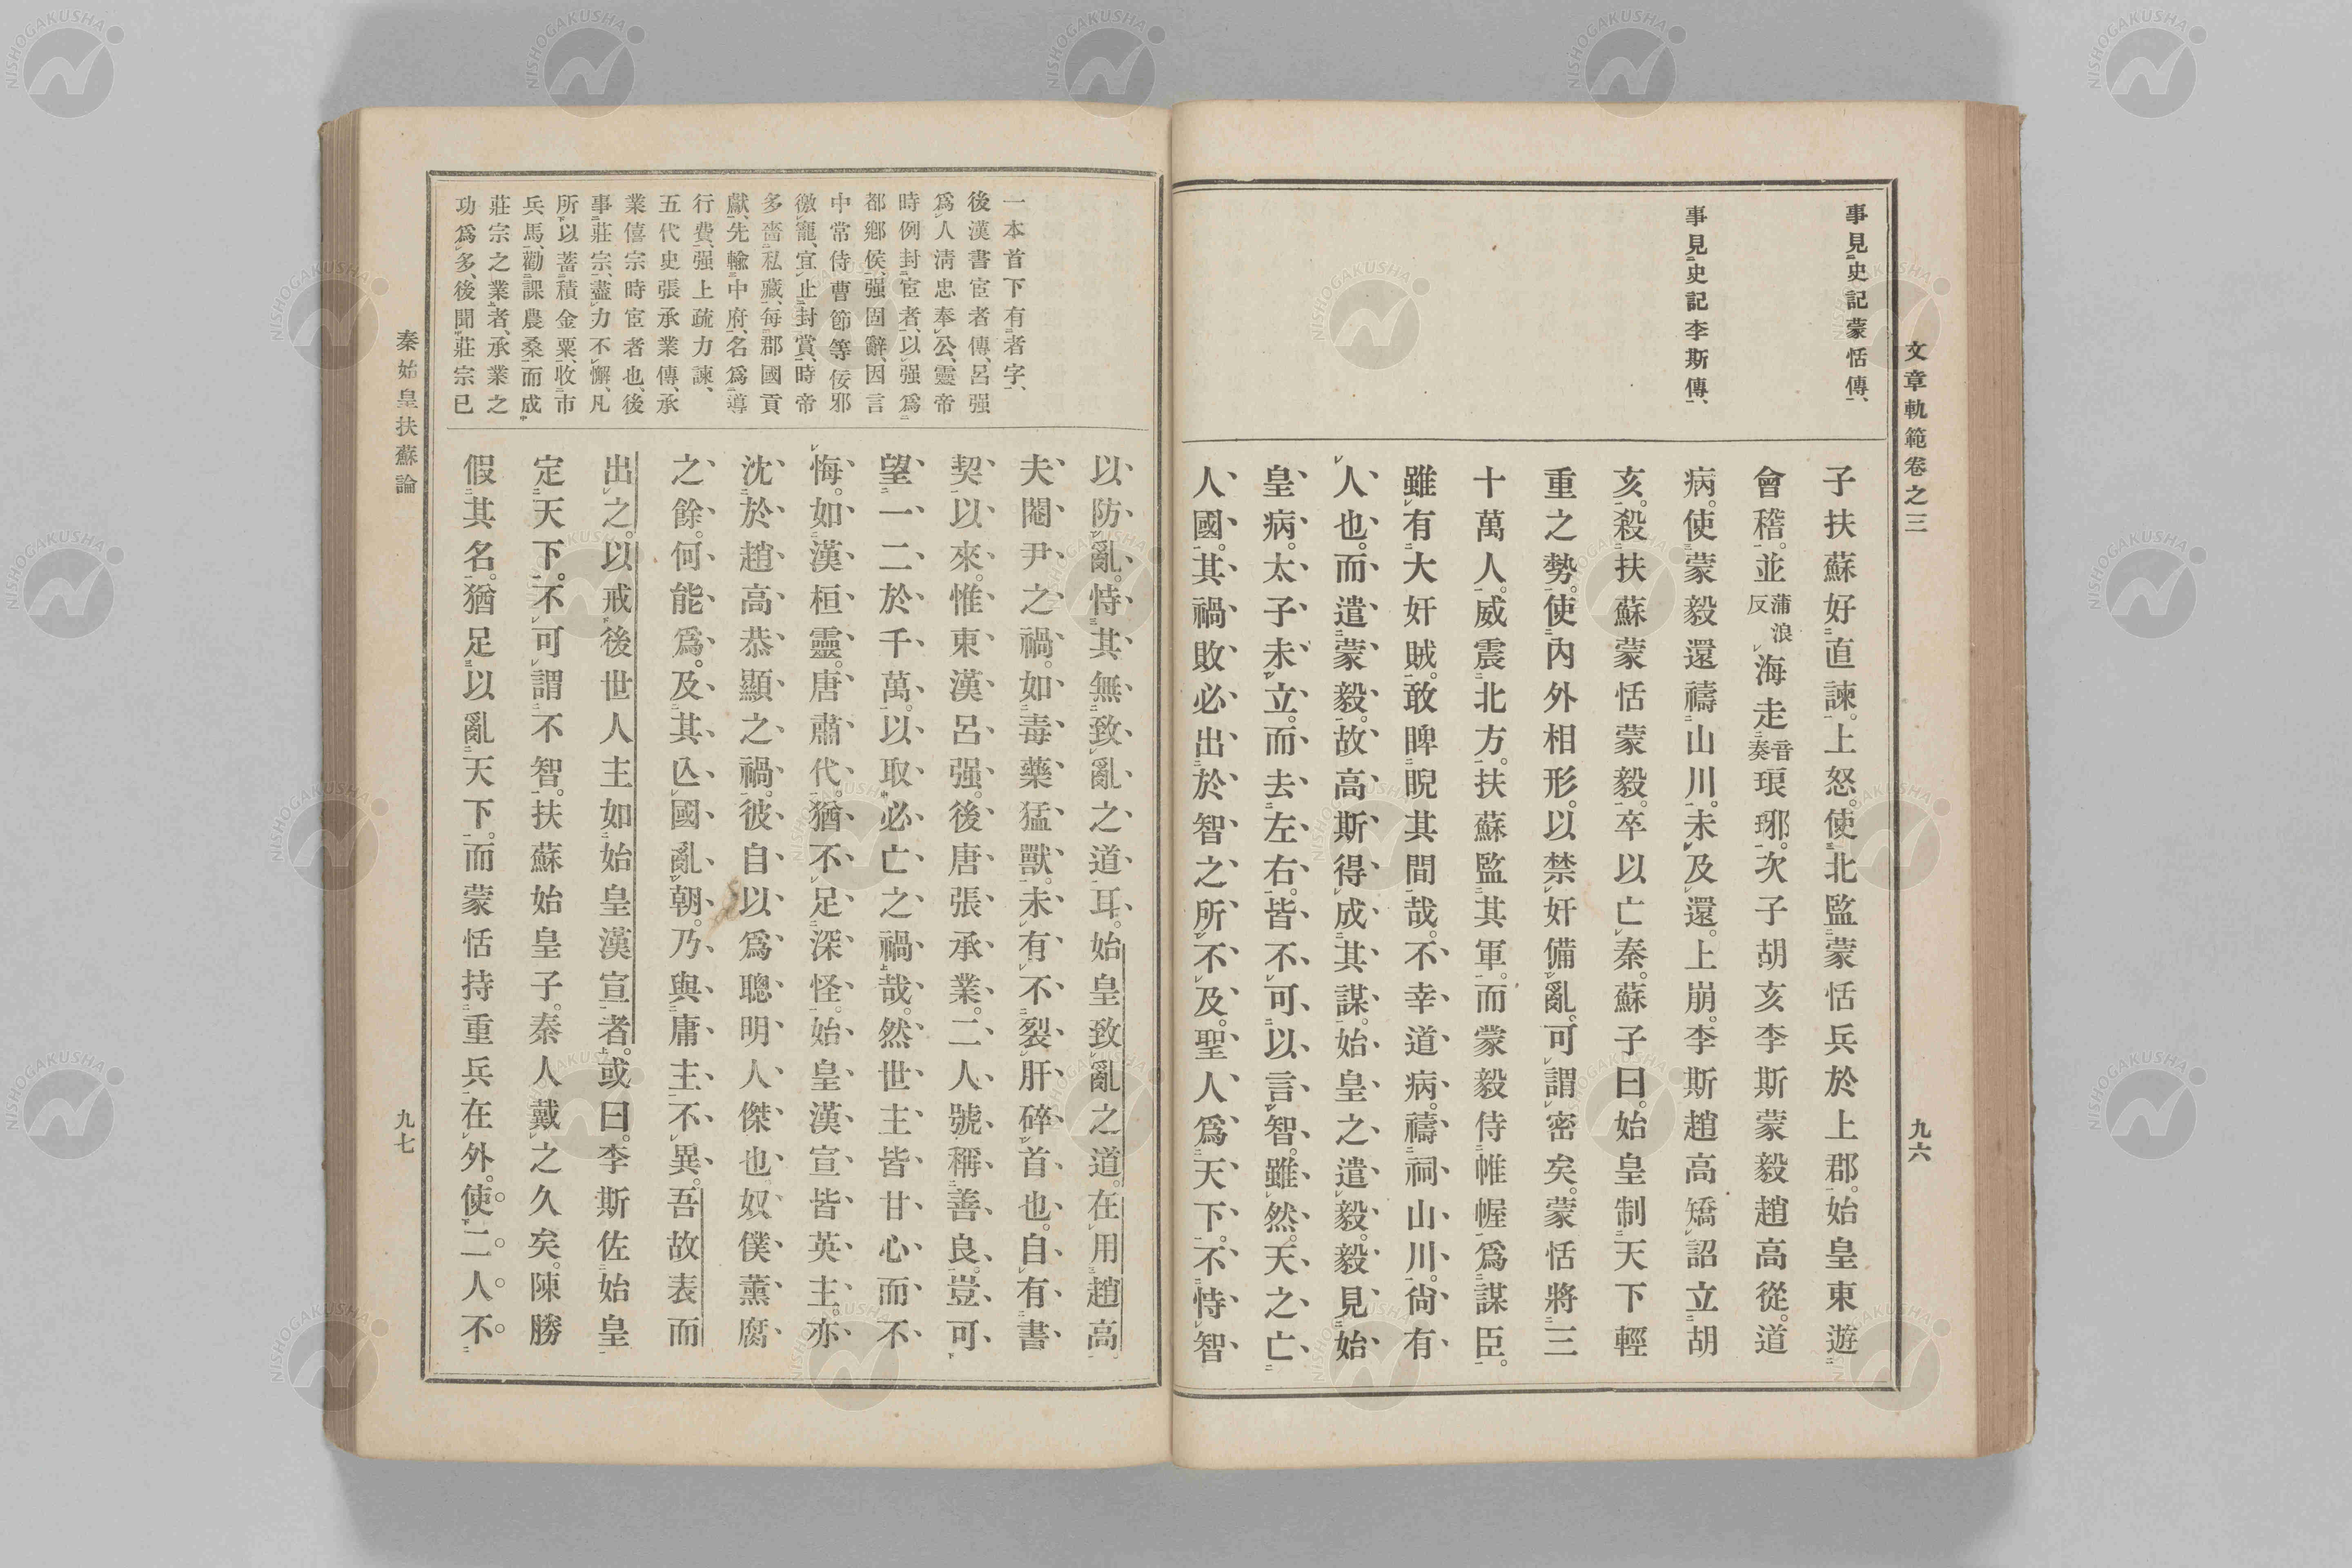 文章軌範卷之三
九六
事見史記蒙恬傳、
事見史記李斯傳、
子扶蘇好直諫。上怒。使北監蒙恬兵於上郡。始皇東遊
會稽。並蒲浪反海走音奏琅琊。次子胡亥李斯蒙毅趙高從。道
病。使蒙毅還禱山川。未及還。上崩。李斯趙高矯詔立胡
亥。殺扶蘇蒙恬蒙毅。卒以亡秦。蘇子曰。始皇制天下輕
重之勢。使內外相形。以禁奸備亂。可謂密矣。蒙恬將三
十萬人。威震北方。扶蘇監其軍。而蒙毅侍帷幄爲謀臣。
雖有大奸賊。敢睥睨其間哉。不幸道病。禱祠山川。尙有
人也。而遣蒙毅。故高斯得成其謀。始皇之遣毅。毅見始
皇病。太子未立。而去左右。皆不可以言智。雖然。天之亡
人國。其禍敗必出於智之所不及。聖人爲天下。不恃智
一本首下有者字、
後漢書宦者傳、呂强
爲人淸忠奉公、靈帝
時例封宦者、以强爲
都鄉侯、强固辭、因言
中常侍曹節等佞邪
徼寵、宜止封賞、時帝
多蓄私藏、每郡國貢
獻、先輸中府、名爲導
行費、强上疏力諫、
五代史張承業傳、承
業僖宗時宦者也、後
事莊宗、盡力不懈、凡
所以蓄積金粟、收市
兵馬、勸課農桑、而成
莊宗之業者、承業之
功爲多、後聞莊宗已
以防亂。恃其無致亂之道耳。始皇致亂之道。在用趙高
夫閹尹之禍。如毒藥猛獸。未有不裂肝碎首也。自有書
契以來。惟東漢呂强。後唐張承業。二人號稱善良。豈可
望一二於千萬。以取必亡之禍哉。然世主皆甘心而不
悔。如漢桓靈。唐肅代。猶不足深怪。始皇漢宣皆英主。亦
沈於趙高恭顯之禍。彼自以爲聰明人傑也。奴僕薰腐
之餘。何能爲。及其亾國亂朝。乃與庸主不異。吾故表而
出之。以戒後世人主如始皇漢宣者。或曰。李斯佐始皇
定天下。不可謂不智。扶蘇始皇子。秦人戴之久矣。陳勝
假其名。猶足以亂天下。而蒙恬持重兵在外。使二人不
秦始皇扶蘇論
九七
NISHOGAKUSHA